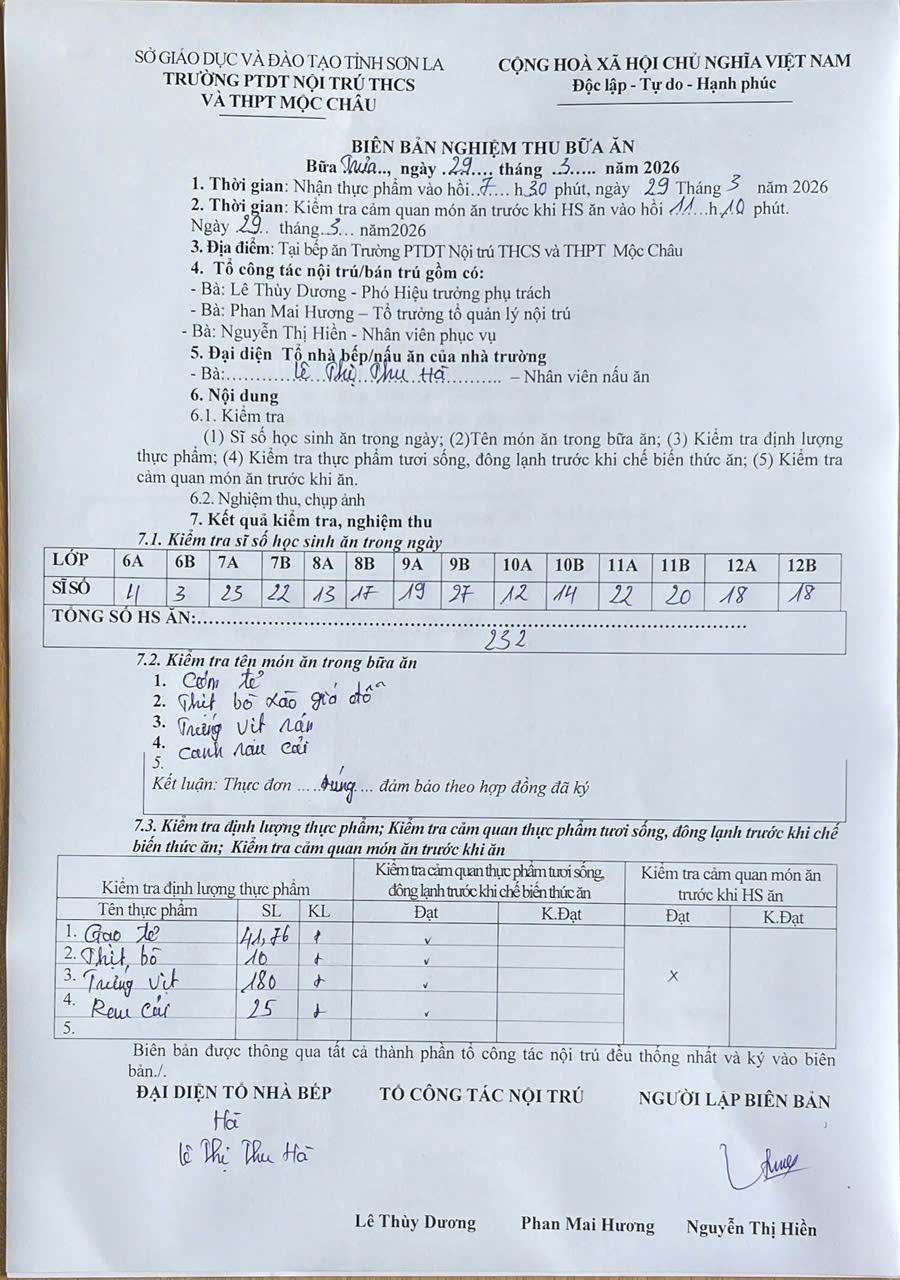 SỞ GIÁO DỤC VÀ ĐÀO TẠO TỈNH SƠN LA
TRƯỜNG PTDT NỘI TRÚ THCS
VÀ THPT MỘC CHÂU
CỘNG HOÀ XÃ HỘI CHỦ NGHĨA VIỆT NAM
Độc lập - Tự do - Hạnh phúc
BIÊN BẢN NGHIỆM THU BỮA ĂN
Bữa Trưa.., ngày .29.... tháng .3..... năm 2026
1. Thời gian: Nhận thực phẩm vào hồi..7.... h30 phút, ngày 29 Tháng 3 năm 2026
2. Thời gian: Kiểm tra cảm quan món ăn trước khi HS ăn vào hồi 11...h.10 phút.
Ngày 29.. tháng.3... năm2026
3. Địa điểm: Tại bếp ăn Trường PTDT Nội trú THCS và THPT Mộc Châu
4. Tổ công tác nội trú/bán trú gồm có:
- Bà: Lê Thùy Dương - Phó Hiệu trưởng phụ trách
- Bà: Phan Mai Hương – Tổ trưởng tổ quản lý nội trú
- Bà: Nguyễn Thị Hiền - Nhân viên phục vụ
5. Đại diện Tổ nhà bếp/nấu ăn của nhà trường
- Bà:............Lê Thị Thu Hà............ – Nhân viên nấu ăn
6. Nội dung
6.1. Kiểm tra
(1) Sĩ số học sinh ăn trong ngày; (2)Tên món ăn trong bữa ăn; (3) Kiểm tra định lượng
thực phẩm; (4) Kiểm tra thực phẩm tươi sống, đông lạnh trước khi chế biến thức ăn; (5) Kiểm tra
cảm quan món ăn trước khi ăn.
6.2. Nghiệm thu, chụp ảnh
7. Kết quả kiểm tra, nghiệm thu
7.1. Kiểm tra sĩ số học sinh ăn trong ngày
LỚP 6A 6B 7A 7B 8A 8B 9A 9B 10A 10B 11A 11B 12A 12B
SĨ SỐ 4 3 23 22 13 17 19 27 12 14 22 20 18 18
TỔNG SỐ HS ĂN:..........................................................
232
7.2. Kiểm tra tên món ăn trong bữa ăn
1. Cơm tẻ
2. Thịt bò xào giá đỗ
3. Trứng vịt rán
4. Canh rau cải
5.
Kết luận: Thực đơn .....đúng.... đảm bảo theo hợp đồng đã ký
7.3. Kiểm tra định lượng thực phẩm; Kiểm tra cảm quan thực phẩm tươi sống, đông lạnh trước khi chế
biến thức ăn; Kiểm tra cảm quan món ăn trước khi ăn
Kiểm tra định lượng thực phẩm
Kiểm tra cảm quan thực phẩm tươi sống,
đông lạnh trước khi chế biến thức ăn
Kiểm tra cảm quan món ăn
trước khi HS ăn
Tên thực phẩm SL KL Đạt K.Đạt Đạt K.Đạt
1. Gạo tẻ 41,76 ✓
2. Thịt bò 10 ✓
3. Trứng vịt 180 ✓ x
4. Rau cải 25 ✓
5.
Biên bản được thông qua tất cả thành phần tổ công tác nội trú đều thống nhất và ký vào biên
bản./.
ĐẠI DIỆN TỔ NHÀ BẾP TỔ CÔNG TÁC NỘI TRÚ NGƯỜI LẬP BIÊN BẢN
Hà
Lê Thị Thu Hà
Lê Thùy Dương Phan Mai Hương Nguyễn Thị Hiền